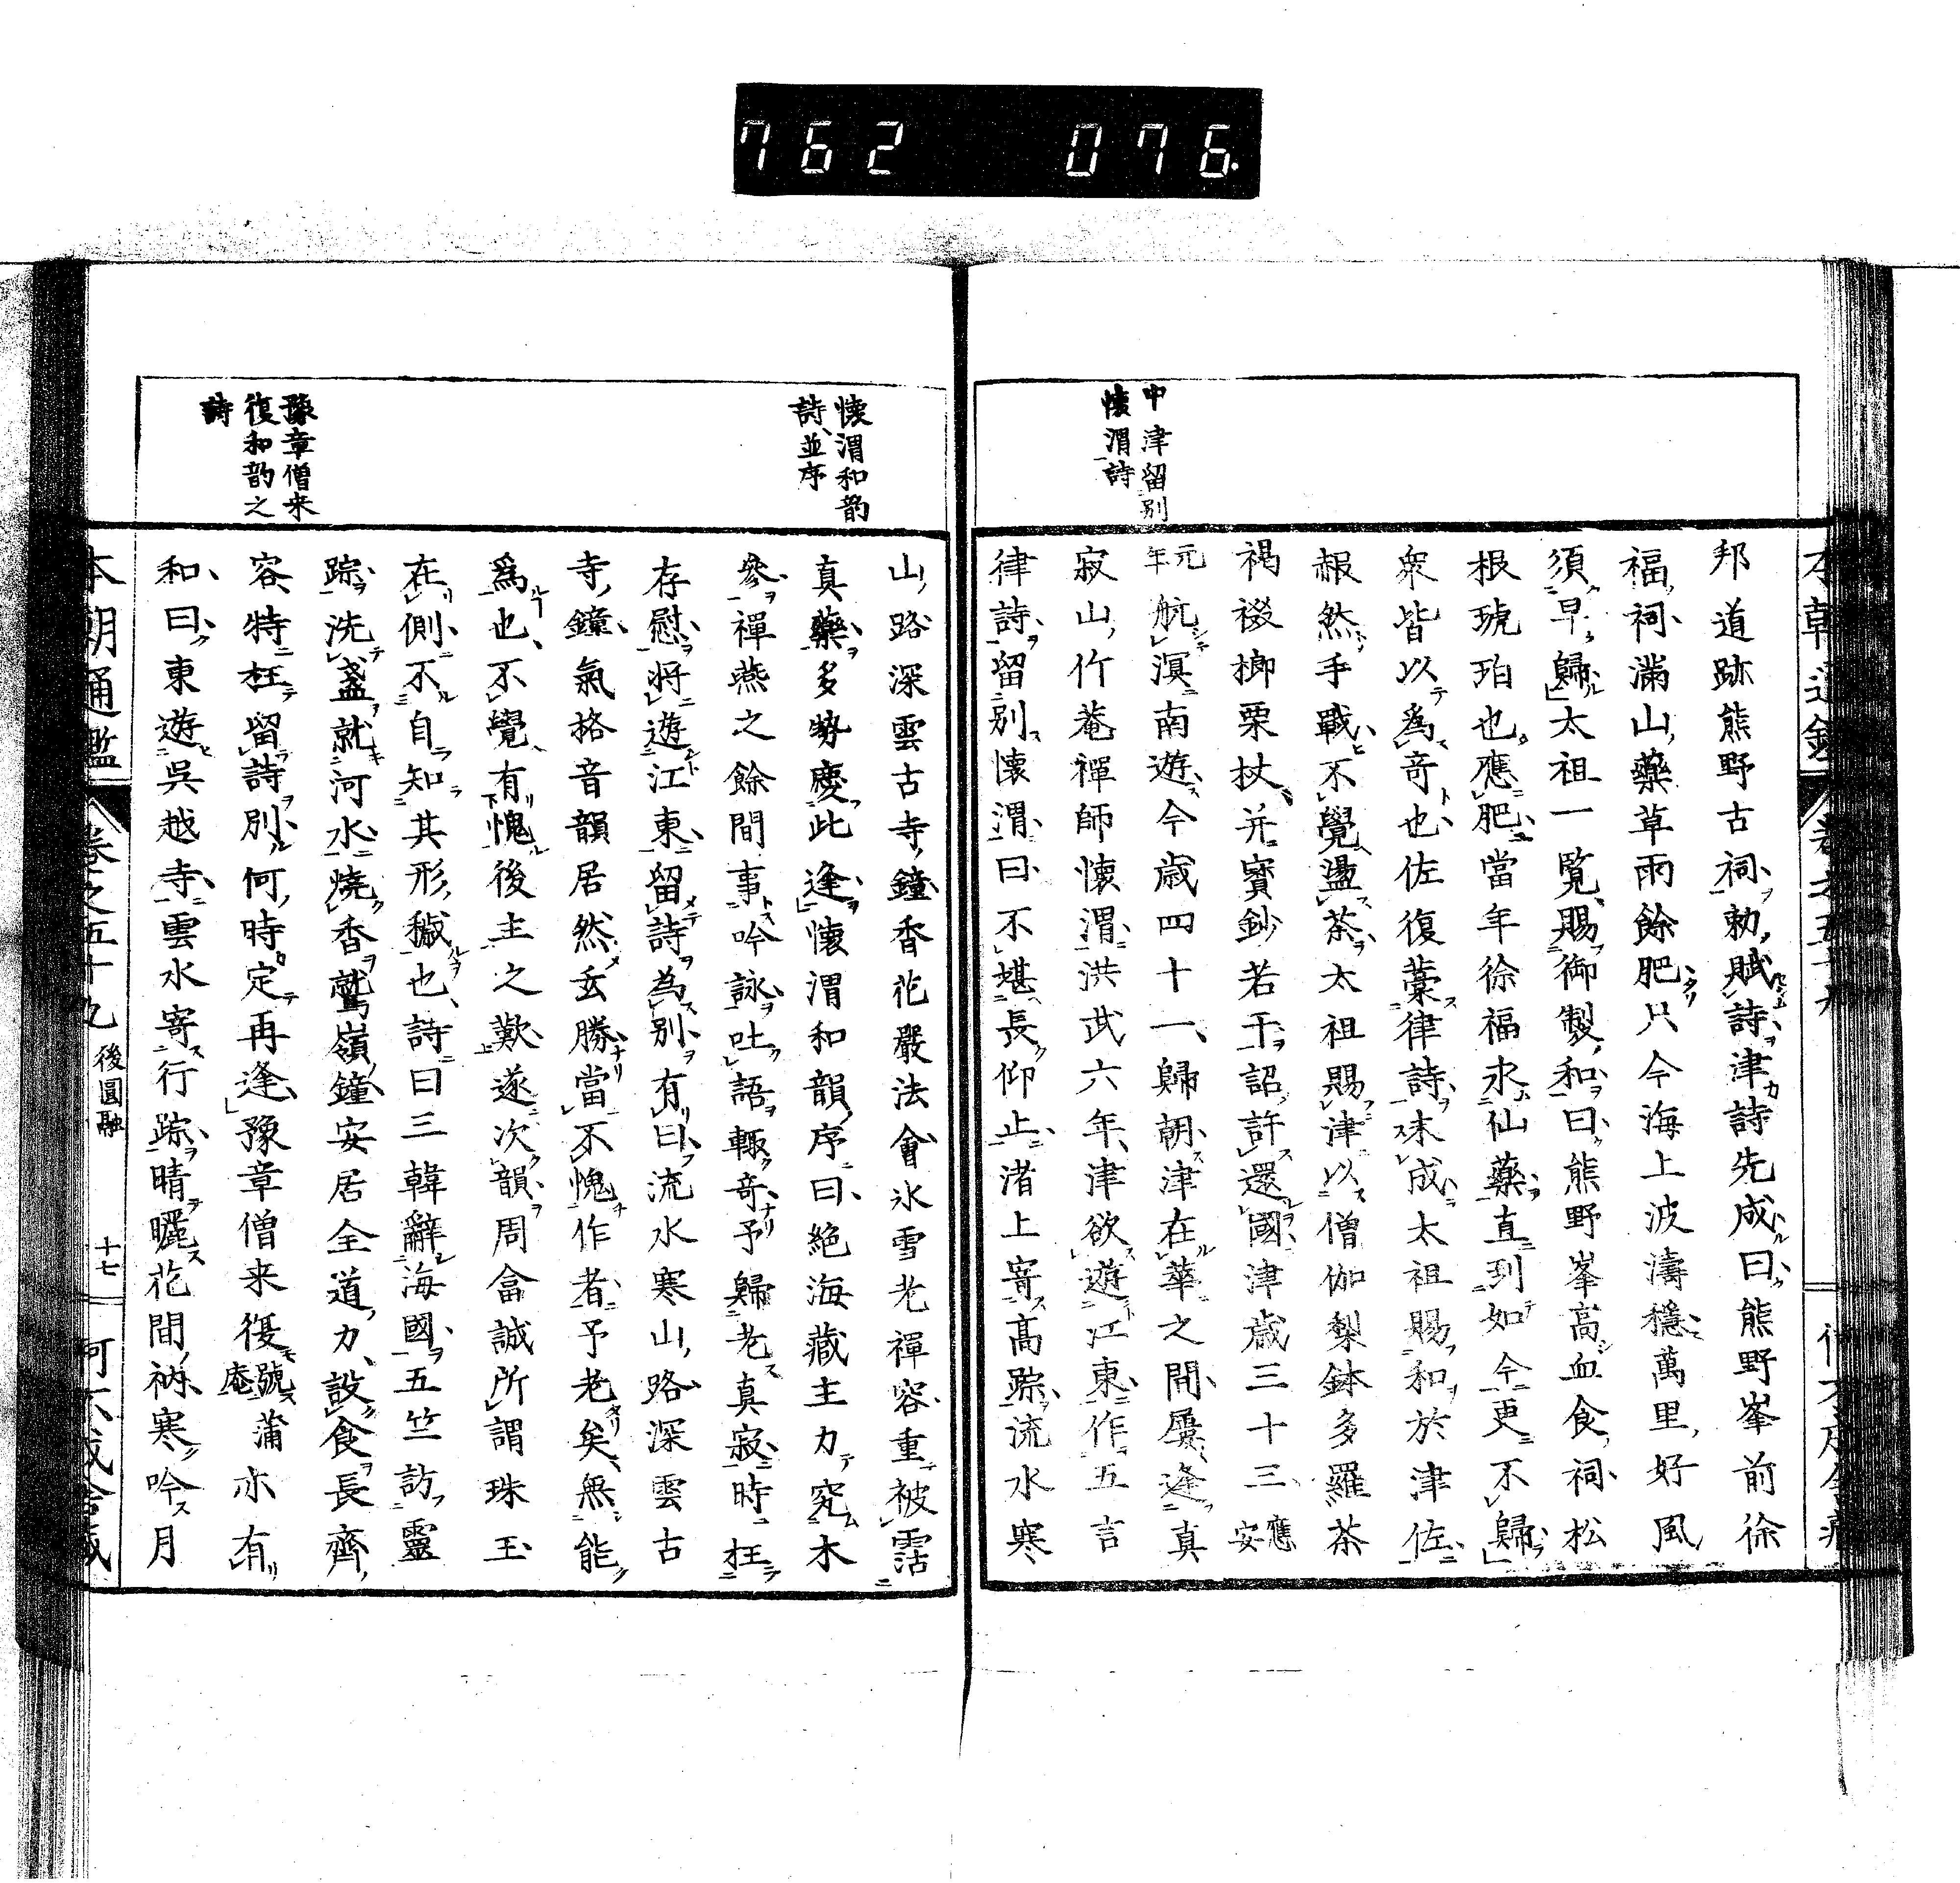 762 076.
中津留別
懐渭詩
邦道跡熊野古祠勅賦詩津詩先成曰熊野峯前徐
福祠滿山藥草雨餘肥只今海上波濤穩萬里好風
須早歸太祖一覧賜御製和曰熊野峯高血食祠松
根琥珀也應肥當年徐福求仙藥直到如今更不歸
衆皆以爲奇也佐復藁律詩未成太祖賜和於津佐
赧然手戰不覺盪茶太祖賜津以僧伽梨鉢多羅茶
褐裰榔栗杖并寳鈔若干詔許還國津歳三十三應安
元年航溟南遊今歳四十一歸朝津在華之間屢逢真
寂山竹菴禪師懐渭洪武六年津欲遊江東作五言
律詩留別懐渭曰不堪長仰止渚上寄高踪流水寒
懐渭和韵
詩並序
豫章僧来
復和韵之
詩
山路深雲古寺鐘香花嚴法會氷雪老禪容重被霑
真藥多勞慶此逢懐渭和韻序曰絶海藏主力究木
參禪燕之餘間事吟詠吐語輙奇予歸老真寂時枉
存慰將遊江東留詩為別有曰流水寒山路深雲古
寺鐘氣格音韻居然玄勝當不愧作者予老矣無能
爲也不覺有愧後主之歎遂次韻周畣誠所謂珠玉
在側不自知其形穢也詩曰三韓辭海國五竺訪靈
踪洗盞就河水燒香鷲嶺鐘安居全道力設食長齊
容特枉留詩別何時定再逢豫章僧来復號蒲庵亦有
和曰東遊呉越寺雲水寄行踪晴曬花間衲寒吟月
本朝通鑑 卷之五十九 後圓融 十七